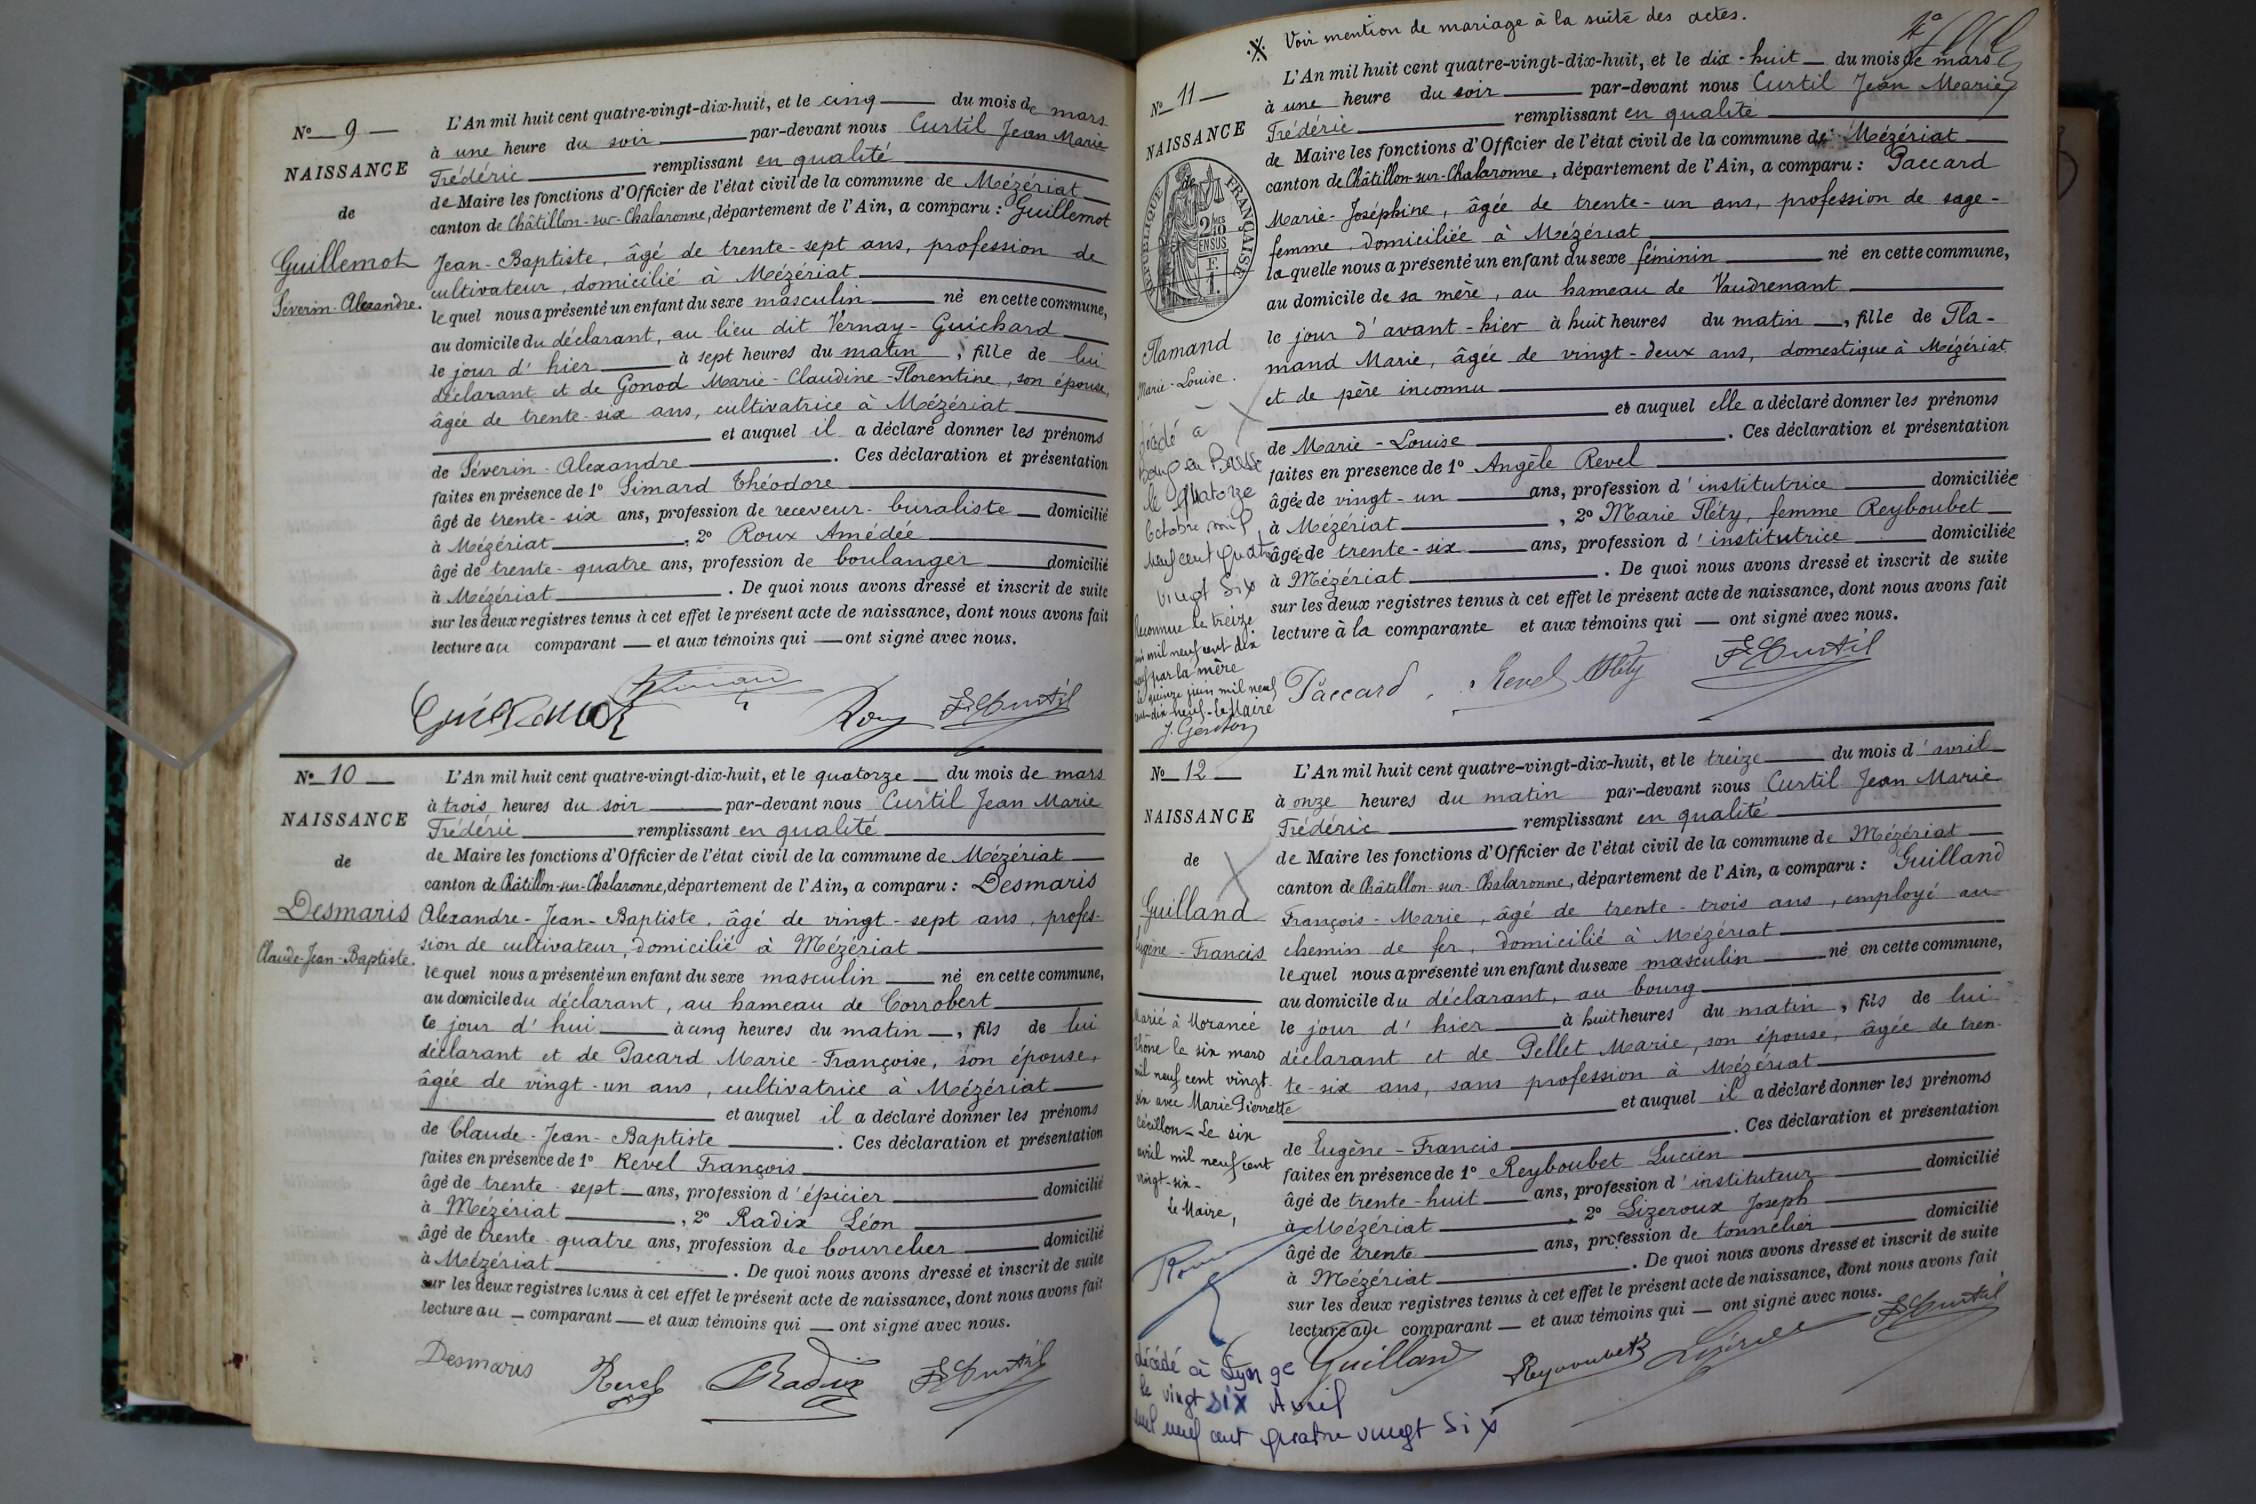 N° 9
NAISSANCE
de
Guillemot
Séverin-Alexandre.
L'An mil huit cent quatre-vingt-dix-huit, et le cinq du mois de mars
à une heure du soir par-devant nous Curtil Jean Marie
Frédéric remplissant en qualité
de Maire les fonctions d'Officier de l'état civil de la commune de Mézériat
canton de Châtillon-sur-Chalaronne, département de l'Ain, a comparu : Guillemot
Jean-Baptiste, âgé de trente-sept ans, profession de
cultivateur, domicilié à Mézériat
lequel nous a présenté un enfant du sexe masculin né en cette commune,
au domicile du déclarant, au lieu dit Vernay-Guichard
le jour d'hier à sept heures du matin, fille de lui
déclarant et de Gonod Marie-Claudine-Florentine, son épouse,
âgée de trente-six ans, cultivatrice à Mézériat
et auquel il a déclaré donner les prénoms
de Séverin-Alexandre. Ces déclaration et présentation
faites en présence de 1° Simard Théodore
âgé de trente-six ans, profession de receveur-buraliste domicilié
à Mézériat, 2° Roux Amédée
âgé de trente-quatre ans, profession de boulanger domicilié
à Mézériat. De quoi nous avons dressé et inscrit de suite
sur les deux registres tenus à cet effet le présent acte de naissance, dont nous avons fait
lecture au comparant et aux témoins qui ont signé avec nous.
Guillemot Roux F Curtil
N° 10
NAISSANCE
de
Desmaris
Claude-Jean-Baptiste.
L'An mil huit cent quatre-vingt-dix-huit, et le quatorze du mois de mars
à trois heures du soir par-devant nous Curtil Jean Marie
Frédéric remplissant en qualité
de Maire les fonctions d'Officier de l'état civil de la commune de Mézériat
canton de Châtillon-sur-Chalaronne, département de l'Ain, a comparu : Desmaris
Alexandre-Jean-Baptiste, âgé de vingt-sept ans, profes-
sion de cultivateur, domicilié à Mézériat
lequel nous a présenté un enfant du sexe masculin né en cette commune,
au domicile du déclarant, au hameau de Corrobert
le jour d'hui à cinq heures du matin, fils de lui
déclarant et de Pacard Marie-Françoise, son épouse,
âgée de vingt-un ans, cultivatrice à Mézériat
et auquel il a déclaré donner les prénoms
de Claude-Jean-Baptiste. Ces déclaration et présentation
faites en présence de 1° Revel François
âgé de trente-sept ans, profession d'épicier domicilié
à Mézériat, 2° Radix Léon
âgé de trente-quatre ans, profession de bourrelier domicilié
à Mézériat. De quoi nous avons dressé et inscrit de suite
sur les deux registres tenus à cet effet le présent acte de naissance, dont nous avons fait
lecture au comparant et aux témoins qui ont signé avec nous.
Desmaris Revel Radix F Curtil
Voir mention de mariage à la suite des actes.
N° 11
NAISSANCE
de
RÉPUBLIQUE FRANÇAISE
Flamand
Marie-Louise.
décédé à
Bourg en Bresse
le quatorze
Octobre mil
neuf cent quatre
vingt six
Reconnue le treize
mai mil neuf cent dix
neuf par la mère
Le quinze juin mil neuf
cent-dix-neuf - Le Maire
L'An mil huit cent quatre-vingt-dix-huit, et le dix-huit du mois de mars
à une heure du soir par-devant nous Curtil Jean Marie
Frédéric remplissant en qualité
de Maire les fonctions d'Officier de l'état civil de la commune de Mézériat
canton de Châtillon-sur-Chalaronne, département de l'Ain, a comparu : Paccard
Marie-Joséphine, âgée de trente-un ans, profession de sage-
femme, domiciliée à Mézériat
laquelle nous a présenté un enfant du sexe féminin né en cette commune,
au domicile de sa mère, au hameau de Vaudrenant
le jour d'avant-hier à huit heures du matin, fille de Fla-
mand Marie, âgée de vingt-deux ans, domestique à Mézériat
et de père inconnu
et auquel elle a déclaré donner les prénoms
de Marie-Louise. Ces déclaration et présentation
faites en présence de 1° Angèle Revel
âgée de vingt-un ans, profession d'institutrice domiciliée
à Mézériat, 2° Marie Fléty, femme Reyboubet
âgée de trente-six ans, profession d'institutrice domiciliée
à Mézériat. De quoi nous avons dressé et inscrit de suite
sur les deux registres tenus à cet effet le présent acte de naissance, dont nous avons fait
lecture à la comparante et aux témoins qui ont signé avec nous.
Paccard. Revel Fléty F Curtil
N° 12
NAISSANCE
de
Guilland
Eugène-Francis
Marié à Morancé
Rhône le six mars
mil neuf cent vingt-
six avec Marie Pierrette
Cérillon - Le six
avril mil neuf cent
vingt-six -
Le Maire,
décédé à Lyon 9e
le vingt six Avril
mil neuf cent quatre vingt six
L'An mil huit cent quatre-vingt-dix-huit, et le treize du mois d'avril
à onze heures du matin par-devant nous Curtil Jean Marie
Frédéric remplissant en qualité
de Maire les fonctions d'Officier de l'état civil de la commune de Mézériat
canton de Châtillon-sur-Chalaronne, département de l'Ain, a comparu : Guilland
François-Marie, âgé de trente-trois ans, employé au
chemin de fer, domicilié à Mézériat
lequel nous a présenté un enfant du sexe masculin né en cette commune,
au domicile du déclarant, au bourg
le jour d'hier à huit heures du matin, fils de lui
déclarant et de Pellet Marie, son épouse, âgée de tren-
te-six ans, sans profession à Mézériat
et auquel il a déclaré donner les prénoms
de Eugène-Francis. Ces déclaration et présentation
faites en présence de 1° Reyboubet Lucien
âgé de trente-huit ans, profession d'instituteur domicilié
à Mézériat, 2° Lizeroux Joseph
âgé de trente ans, profession de tonnelier domicilié
à Mézériat. De quoi nous avons dressé et inscrit de suite
sur les deux registres tenus à cet effet le présent acte de naissance, dont nous avons fait
lecture au comparant et aux témoins qui ont signé avec nous.
Guilland Reyboubet F Curtil